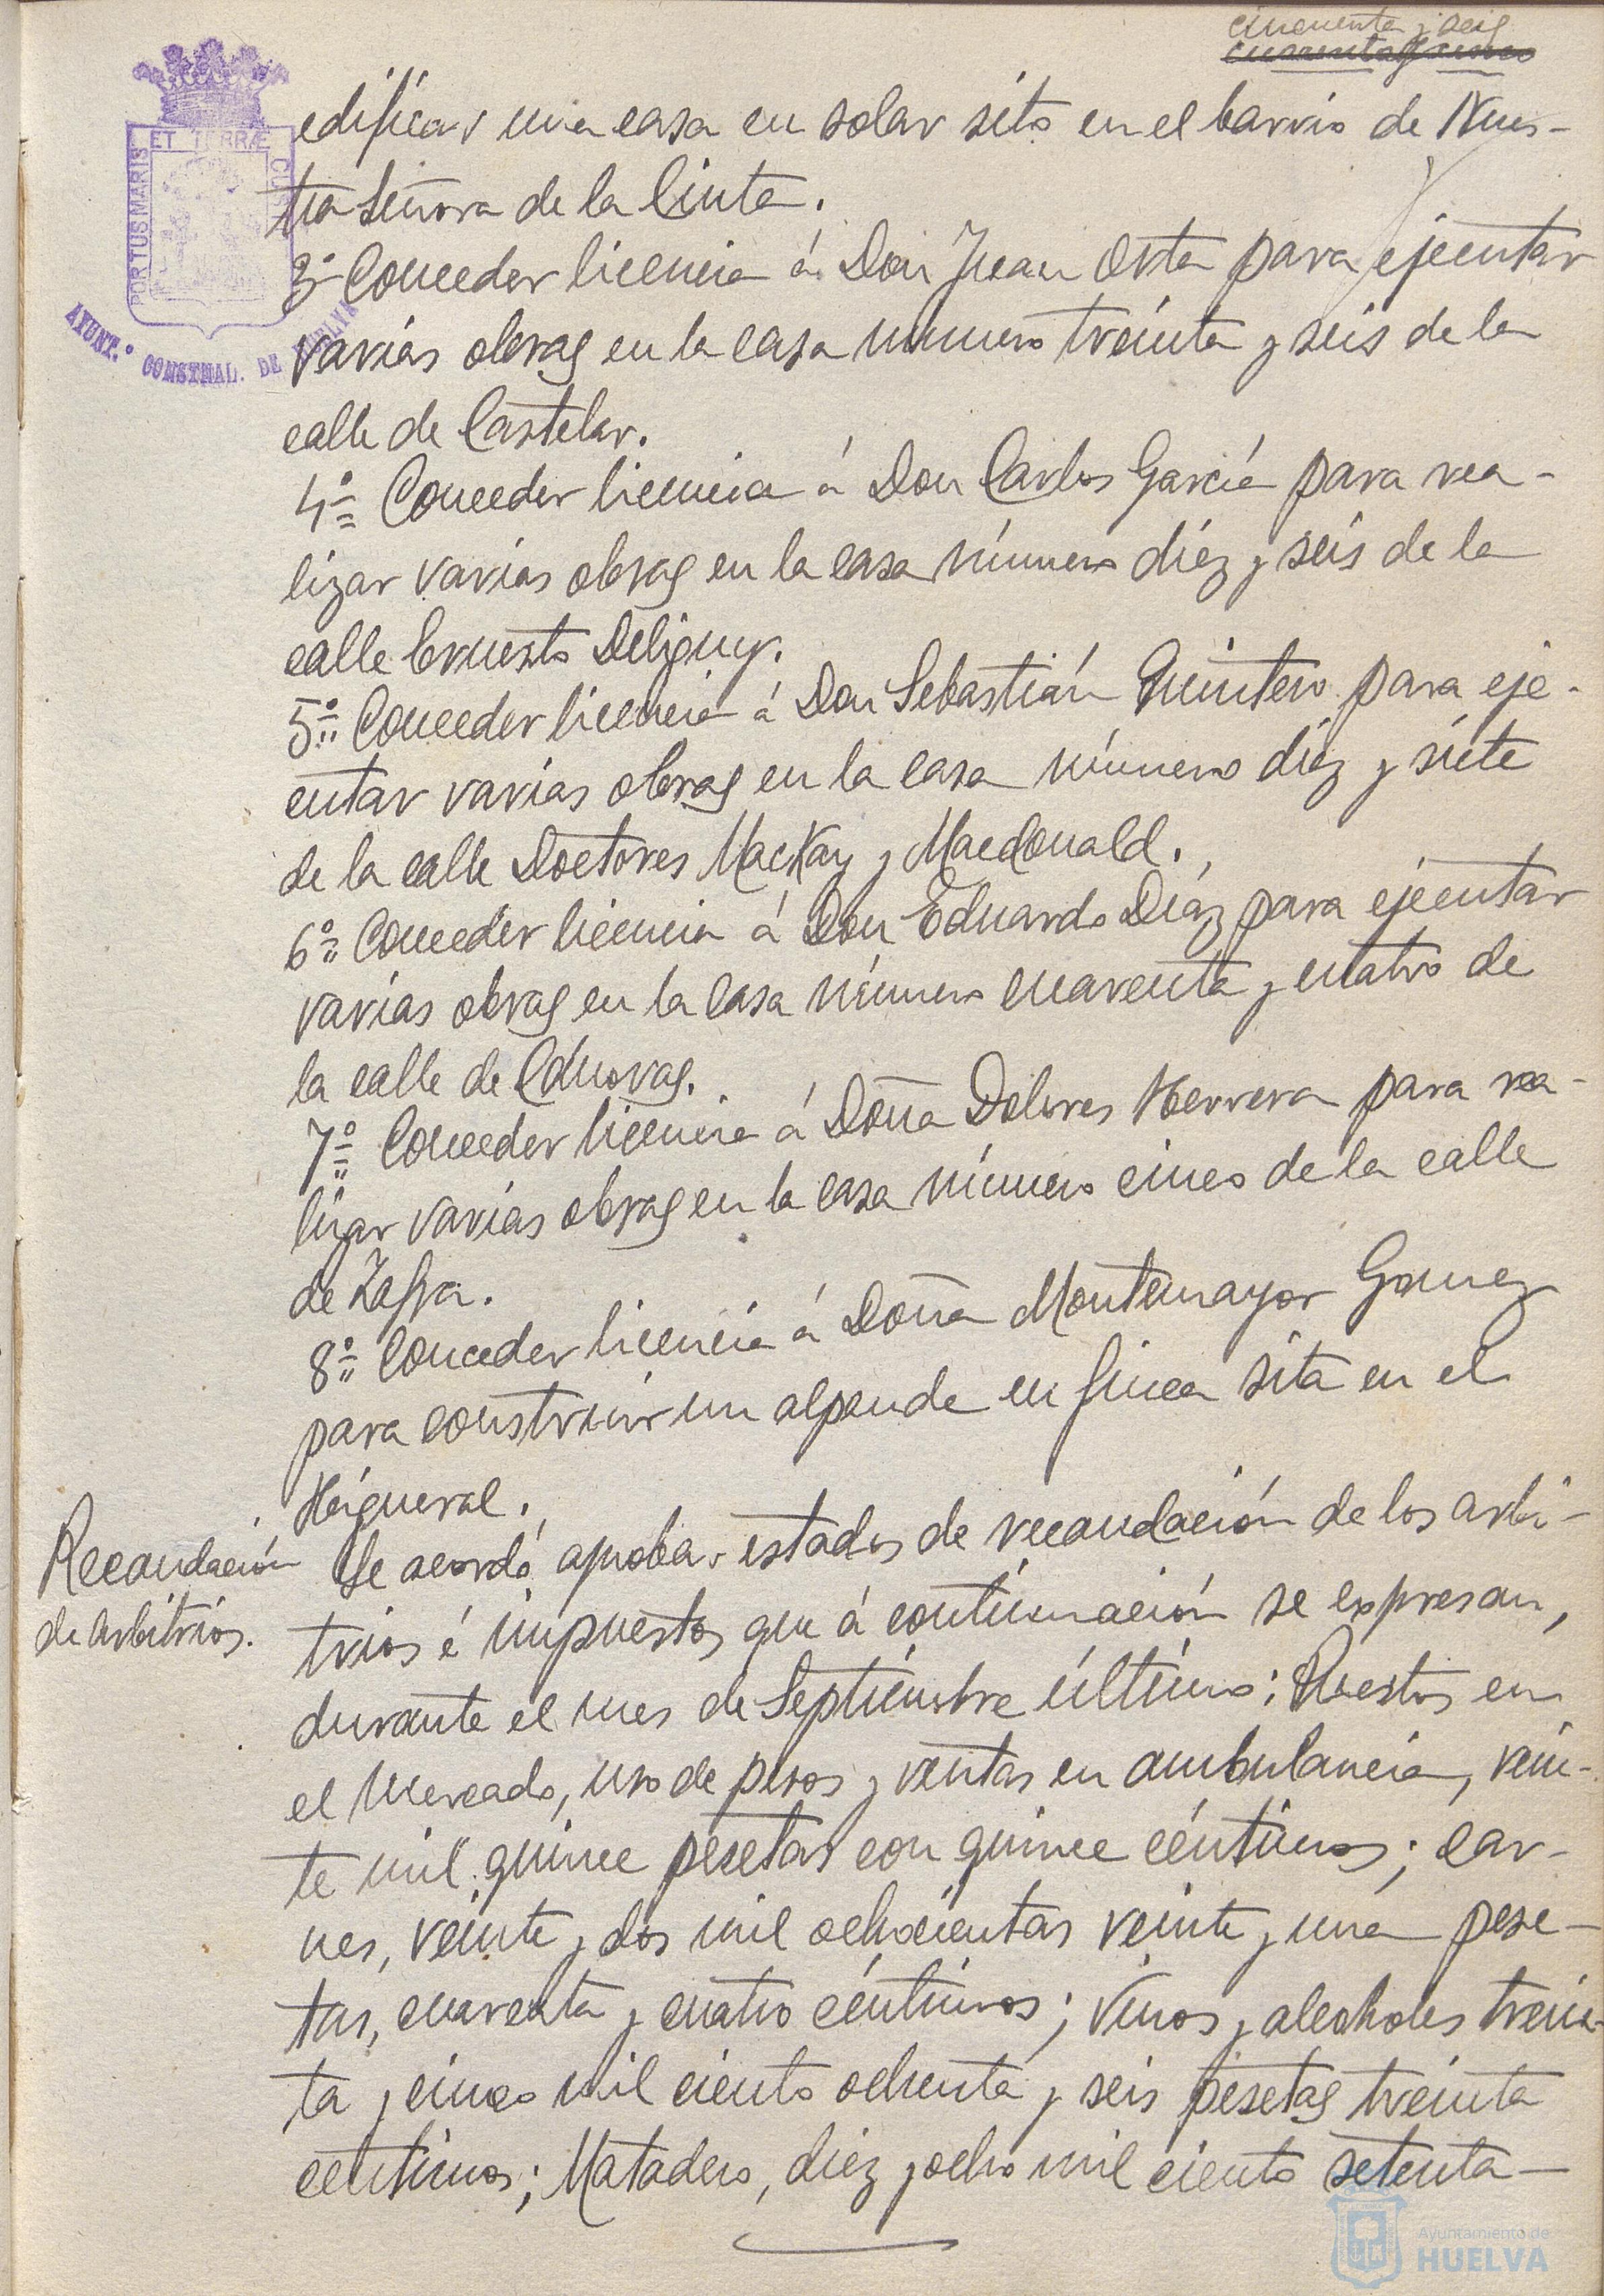 cincuenta y seis
cuarenta y cinco
ET TERRÆ
PORTUS MARIS
AYUNT.º CONSTNAL. DE HUELVA
edificar una casa en solar sito en el barrio de Nues-
tra Señora de la Cinta.
3º Conceder licencia á Don Juan Orta para ejecutar
varias obras en la casa número treinta y seis de la
calle de Castelar.
4º Conceder licencia á Don Carlos García para rea-
lizar varias obras en la casa número diez y seis de la
calle Ernesto Deligny.
5º Conceder licencia á Don Sebastián Quintero para eje-
cutar varias obras en la casa número diez y siete
de la calle Doctores MacKay y Macdonald.
6º Conceder licencia á Don Eduardo Díaz para ejecutar
varias obras en la casa número cuarenta y cuatro de
la calle de Cánovas.
7º Conceder licencia á Doña Dolores Herrera para rea-
lizar varias obras en la casa número cinco de la calle
de Zafra.
8º Conceder licencia á Doña Montemayor Gomez
para construir un alpende en finca sita en el
Higueral.
Recaudación
de arbitrios.
Se acordó aprobar estados de recaudación de los arbi-
trios é impuestos que á continuación se expresan,
durante el mes de Septiembre último: Puestos en
el Mercado, uso de pesos y ventas en ambulancia, vein-
te mil quince pesetas con quince céntimos; car-
nes, veinte y dos mil ochocientas veinte y una pese-
tas, cuarenta y cuatro céntimos; Vinos y alcoholes trein-
ta y cinco mil ciento ochenta y seis pesetas treinta
centimos; Matadero, diez y ocho mil ciento setenta
Ayuntamiento de
HUELVA